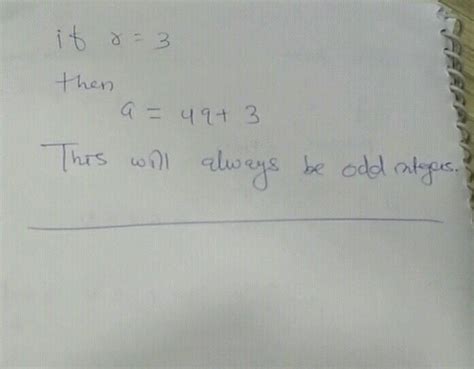 if r = 3
then
a = 4q + 3
This will always be odd integers.